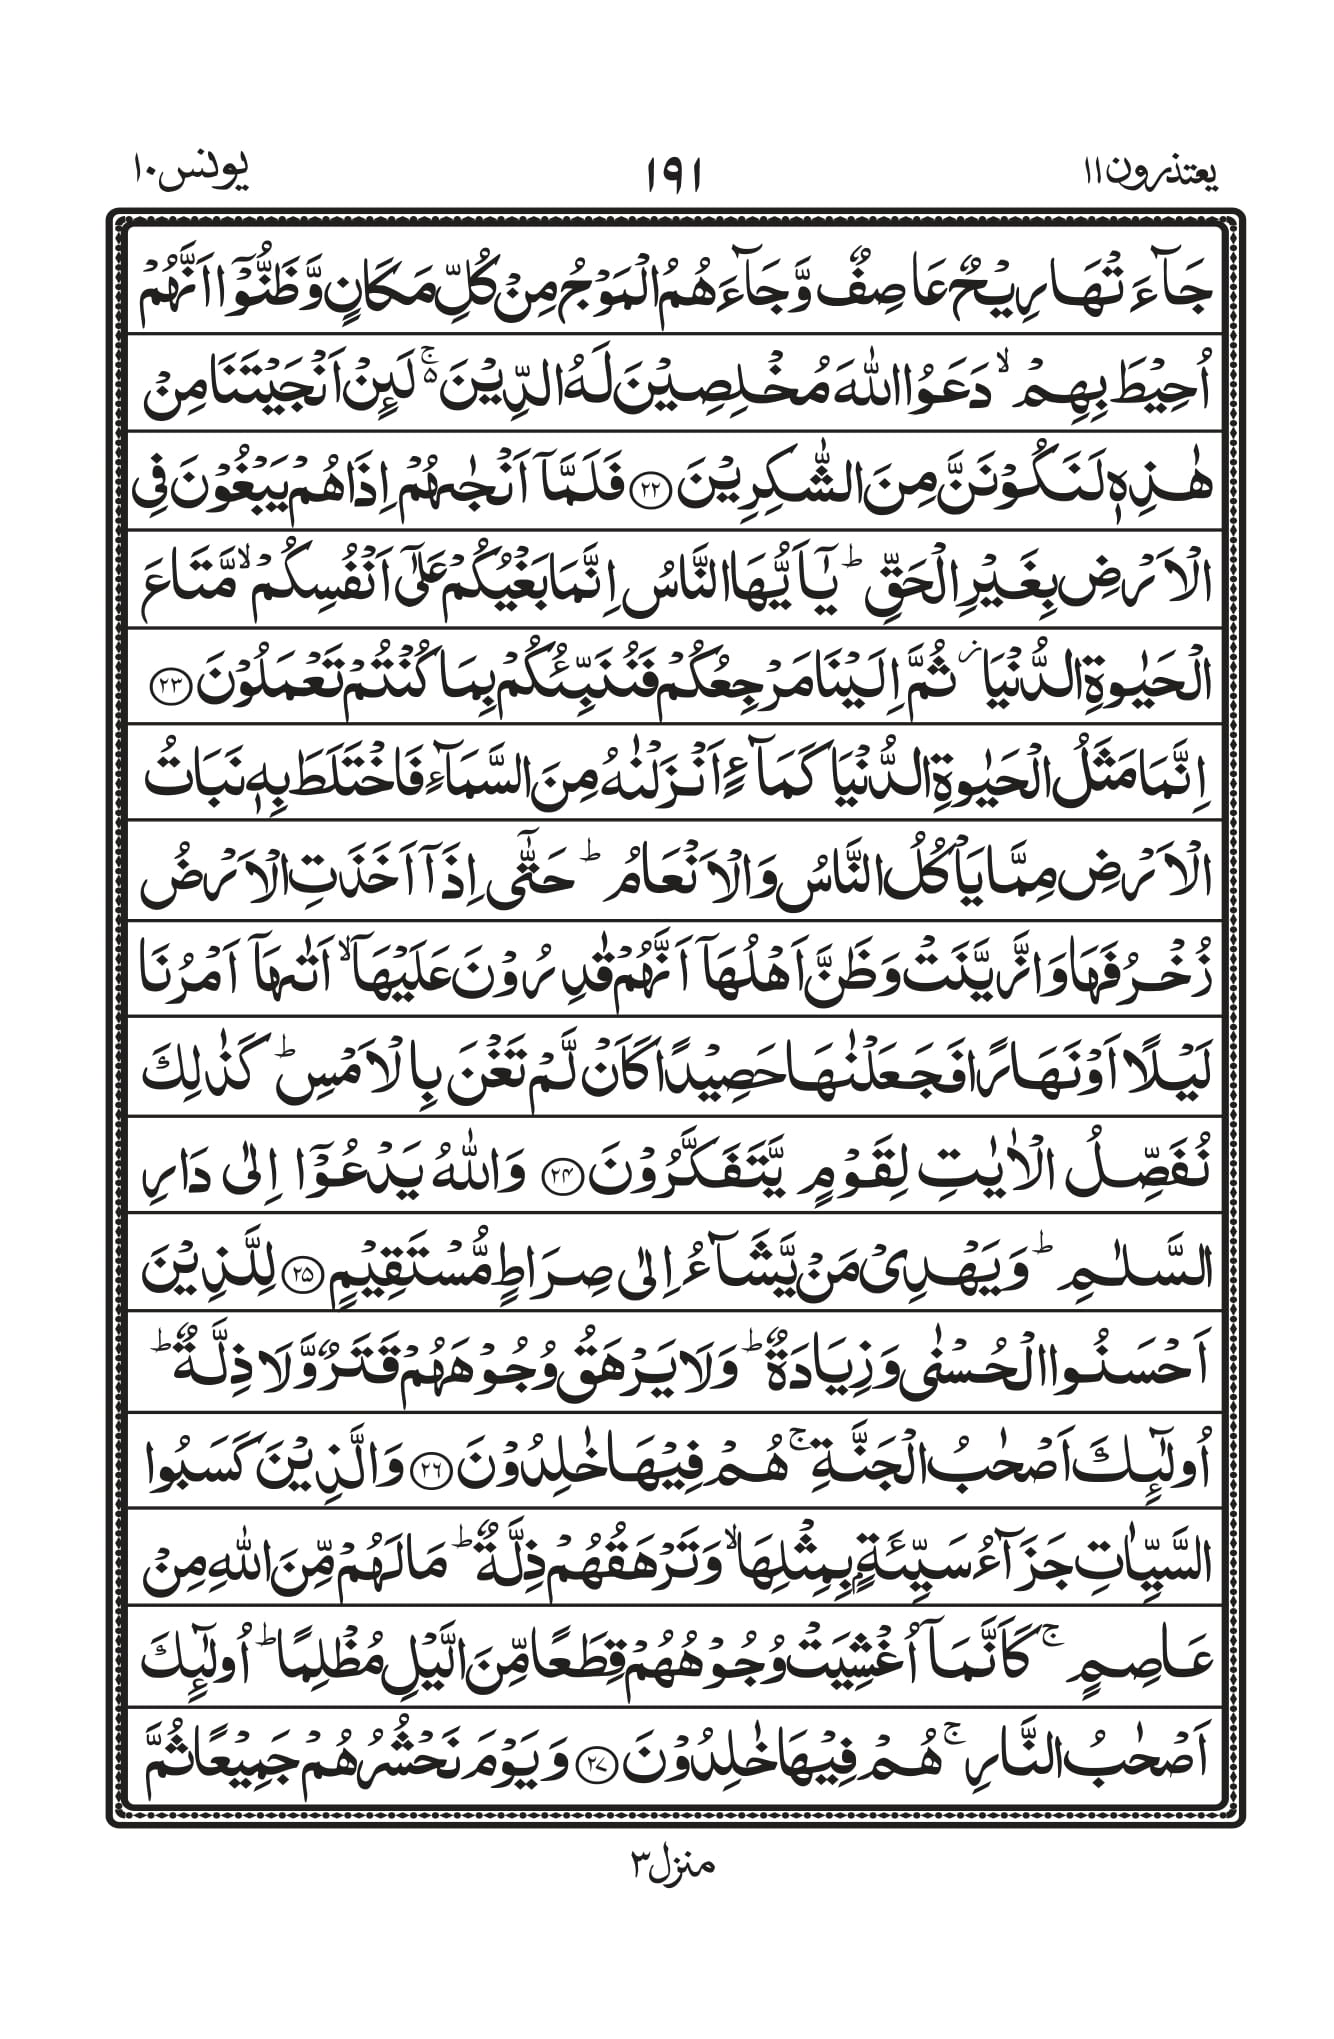 یعتذرون ۱۱
۱۹۱
یونس ۱۰
جَآءَتْهَا رِیْحٌ عَاصِفٌ وَّجَآءَهُمُ الْمَوْجُ مِنْ كُلِّ مَكَانٍ وَّظَنُّوْۤا اَنَّهُمْ
اُحِیْطَ بِهِمْ ۙ دَعَوُا اللّٰهَ مُخْلِصِیْنَ لَهُ الدِّیْنَ ۚ۬ لَىِٕنْ اَنْجَیْتَنَا مِنْ
هٰذِهٖ لَنَكُوْنَنَّ مِنَ الشّٰكِرِیْنَ ﴿۲۲﴾ فَلَمَّاۤ اَنْجٰىهُمْ اِذَا هُمْ یَبْغُوْنَ فِی
الْاَرْضِ بِغَیْرِ الْحَقِّ ؕ یٰۤاَیُّهَا النَّاسُ اِنَّمَا بَغْیُكُمْ عَلٰۤى اَنْفُسِكُمْ ۙ مَّتَاعَ
الْحَیٰوةِ الدُّنْیَا ؗ ثُمَّ اِلَیْنَا مَرْجِعُكُمْ فَنُنَبِّئُكُمْ بِمَا كُنْتُمْ تَعْمَلُوْنَ ﴿۲۳﴾
اِنَّمَا مَثَلُ الْحَیٰوةِ الدُّنْیَا كَمَآءٍ اَنْزَلْنٰهُ مِنَ السَّمَآءِ فَاخْتَلَطَ بِهٖ نَبَاتُ
الْاَرْضِ مِمَّا یَاْكُلُ النَّاسُ وَالْاَنْعَامُ ؕ حَتّٰۤى اِذَاۤ اَخَذَتِ الْاَرْضُ
زُخْرُفَهَا وَازَّیَّنَتْ وَظَنَّ اَهْلُهَاۤ اَنَّهُمْ قٰدِرُوْنَ عَلَیْهَاۤ ۙ اَتٰىهَاۤ اَمْرُنَا
لَیْلًا اَوْ نَهَارًا فَجَعَلْنٰهَا حَصِیْدًا كَاَنْ لَّمْ تَغْنَ بِالْاَمْسِ ؕ كَذٰلِكَ
نُفَصِّلُ الْاٰیٰتِ لِقَوْمٍ یَّتَفَكَّرُوْنَ ﴿۲۴﴾ وَاللّٰهُ یَدْعُوْۤا اِلٰى دَارِ
السَّلٰمِ ؕ وَیَهْدِیْ مَنْ یَّشَآءُ اِلٰى صِرَاطٍ مُّسْتَقِیْمٍ ﴿۲۵﴾ لِلَّذِیْنَ
اَحْسَنُوا الْحُسْنٰى وَزِیَادَةٌ ؕ وَلَا یَرْهَقُ وُجُوْهَهُمْ قَتَرٌ وَّلَا ذِلَّةٌ ؕ
اُولٰٓىِٕكَ اَصْحٰبُ الْجَنَّةِ ۚ هُمْ فِیْهَا خٰلِدُوْنَ ﴿۲۶﴾ وَالَّذِیْنَ كَسَبُوا
السَّیِّاٰتِ جَزَآءُ سَیِّئَةٍۭ بِمِثْلِهَا ۙ وَتَرْهَقُهُمْ ذِلَّةٌ ؕ مَا لَهُمْ مِّنَ اللّٰهِ مِنْ
عَاصِمٍ ۚ كَاَنَّمَاۤ اُغْشِیَتْ وُجُوْهُهُمْ قِطَعًا مِّنَ الَّیْلِ مُظْلِمًا ؕ اُولٰٓىِٕكَ
اَصْحٰبُ النَّارِ ۚ هُمْ فِیْهَا خٰلِدُوْنَ ﴿۲۷﴾ وَیَوْمَ نَحْشُرُهُمْ جَمِیْعًا ثُمَّ
منزل ۳